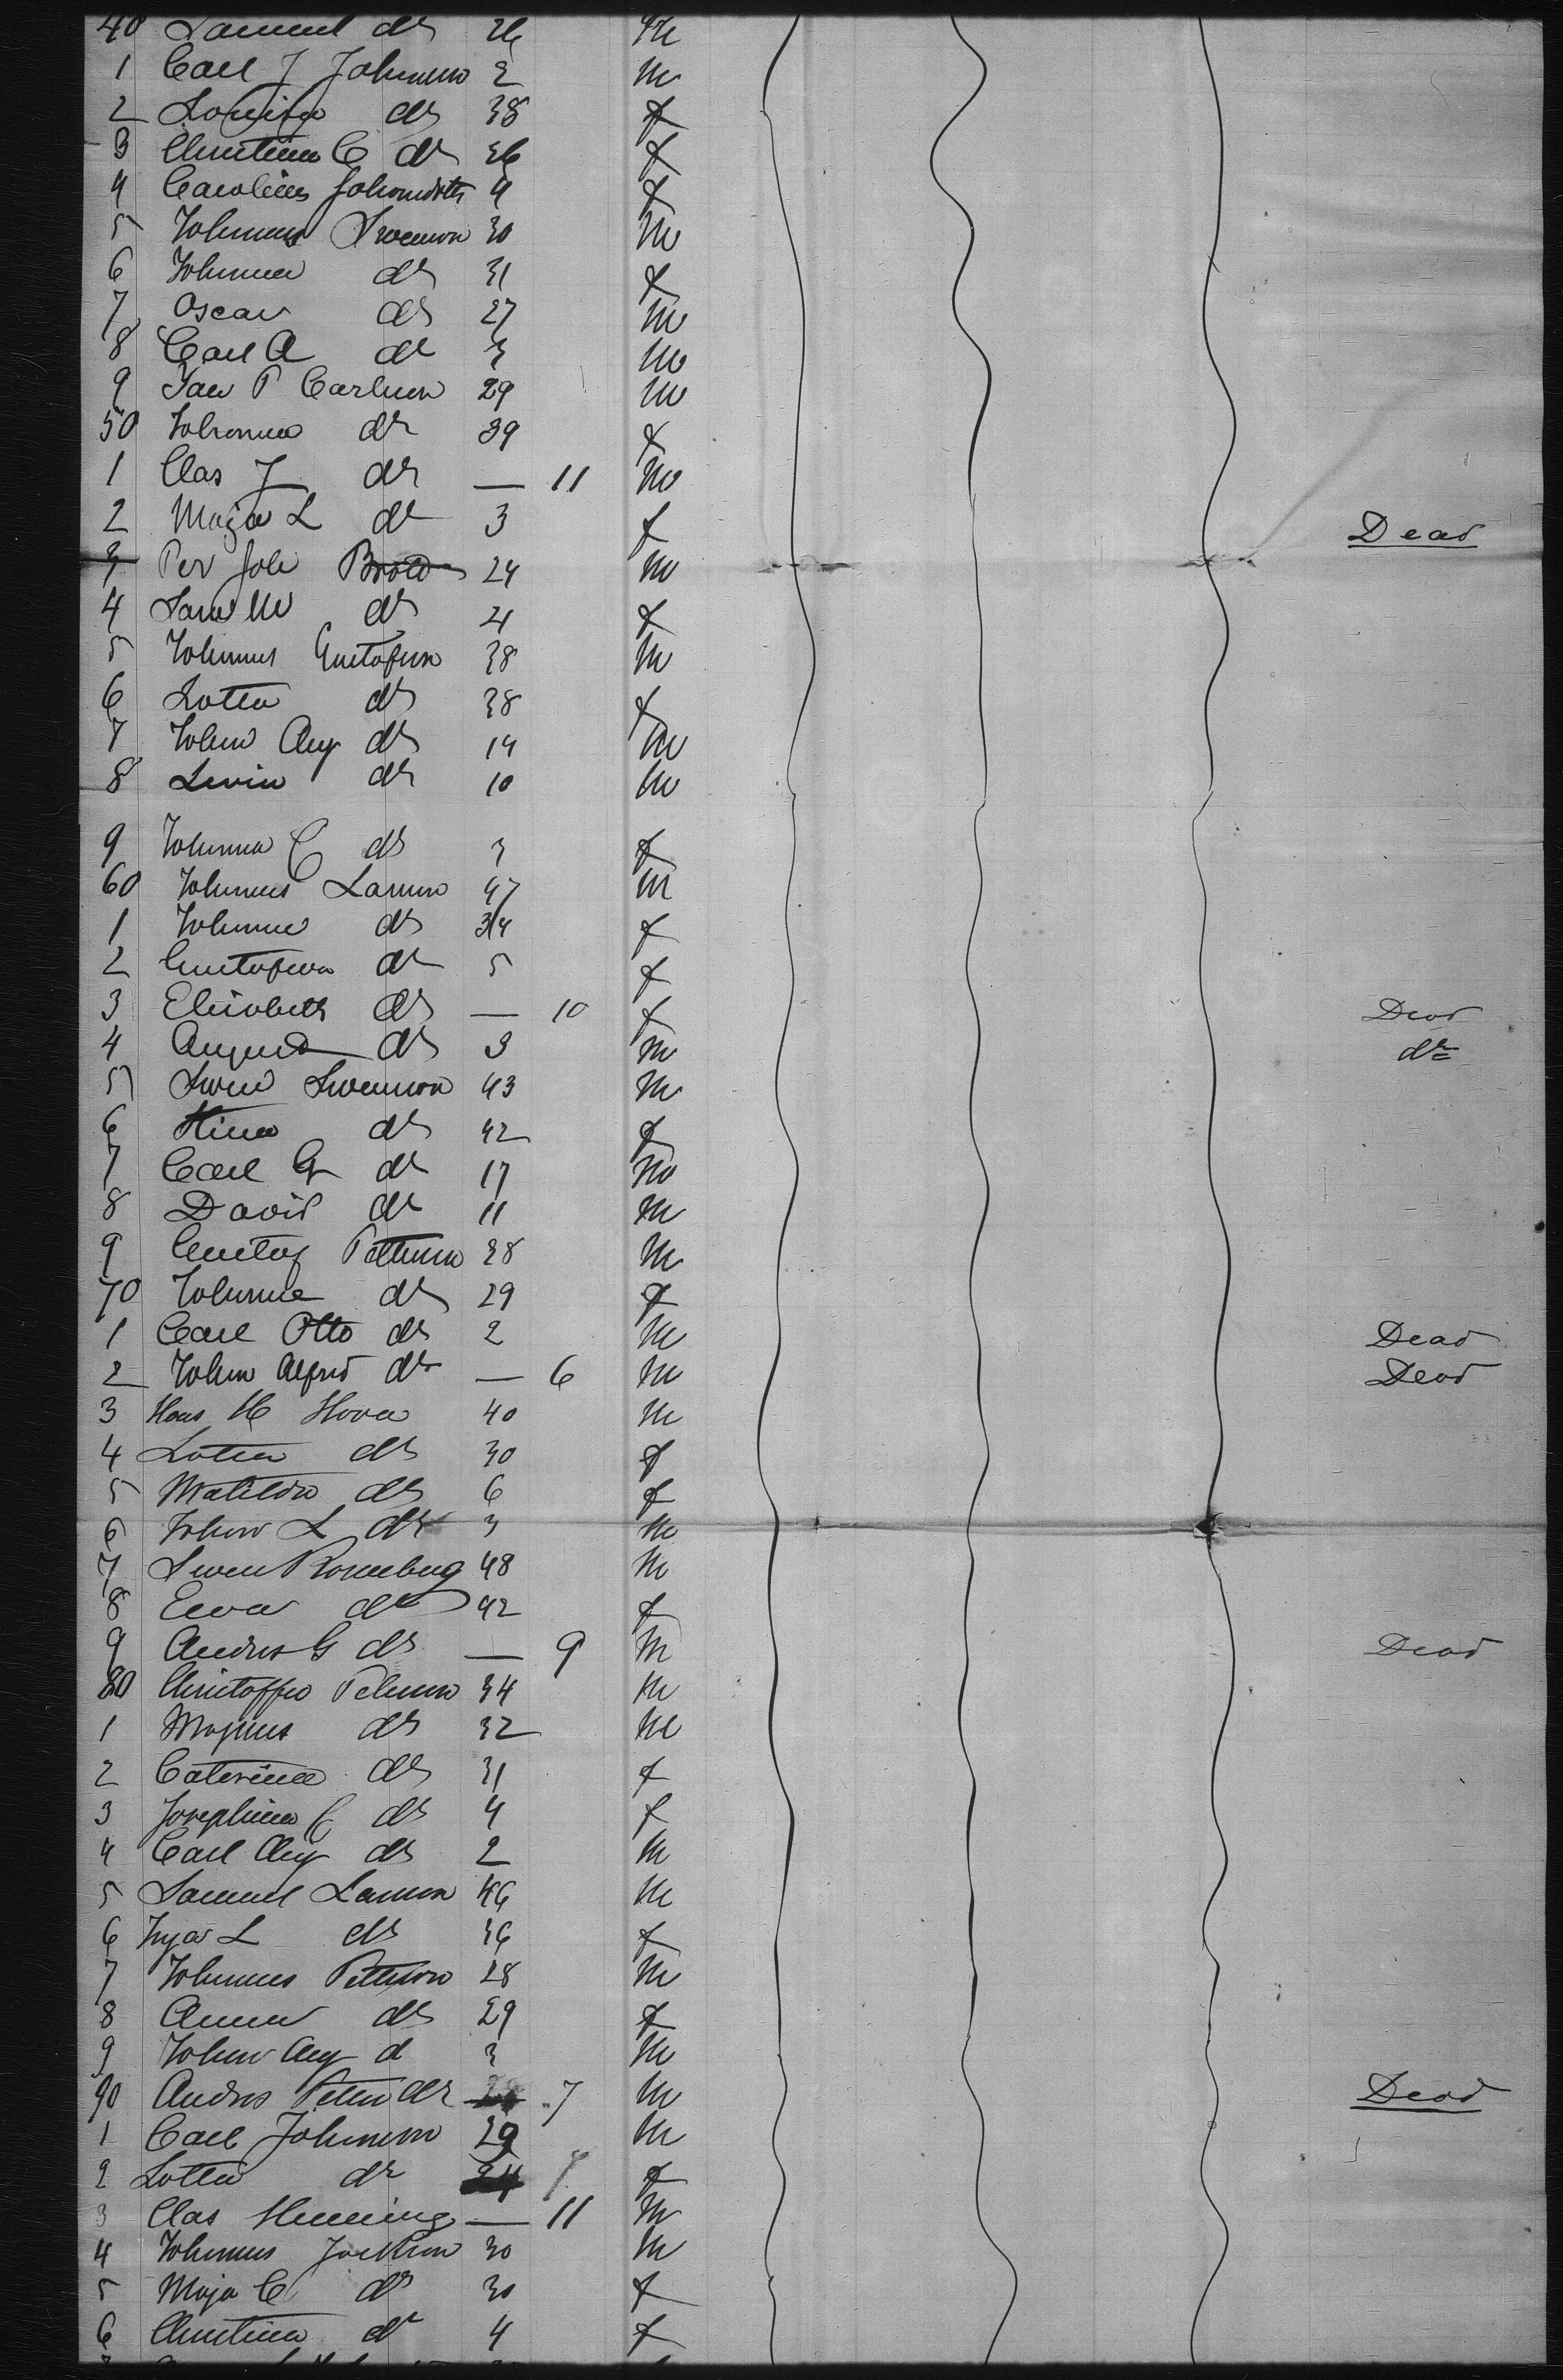 40 Samuel do 36 m
1 Carl J Johnson 2 m
2 Lovisa do 38 f
3 Christina C do 36 f
4 Carolina Johansdtr 4 f
5 Johannes Swenson 30 m
6 Johanna do 31 f
7 Oscar do 27 m
8 Carl A do 3 m
9 Jan P Carlson 29 m
50 Johanna do 39 f
1 Clas J do — 11 m
2 Maja L do 3 f Dead
3 Per Joh Brold 24 m
4 Sara M do 21 f
5 Johannes Gustafson 38 m
6 Lotta do 38 f
7 Johan Aug do 14 m
8 Levin do 10 m
9 Johanna C do 3 f
60 Johannes Larsson 47 m
1 Johanna do 34 f
2 Gustafva do 5 f
3 Elisabeth do — 10 f Dead
4 August do 3 m do
5 Swen Swenson 43 m
6 Stina do 42 f
7 Carl G do 17 m
8 David do 11 m
9 Gustaf Petterson 38 m
70 Johanna do 29 f
1 Carl Otto do 2 m Dead
2 Johan Alfred do — 6 m Dead
3 Hans M Hova 40 m
4 Lotta do 30 f
5 Matilda do 6 f
6 Johan L do 3 m
7 Swen Rosenberg 48 m
8 Eva do 42 f
9 Andrs G do — 9 m Dead
80 Christoffer Peterson 34 m
1 Magnus do 32 m
2 Caterina do 31 f
3 Josephina C do 4 f
4 Carl Aug do 2 m
5 Samuel Larsson 46 m
6 Ingar L do 36 f
7 Johannes Petterson 28 m
8 Anna do 29 f
9 Johan Aug d 3 m
90 Andrs Peter do 7 m Dead
1 Carl Johnson 29 m
2 Lotta do 24 f
3 Clas Henning — 11 m
4 Johannes 30 m
5 Maja C do 30 f
6 Christina do 4 f